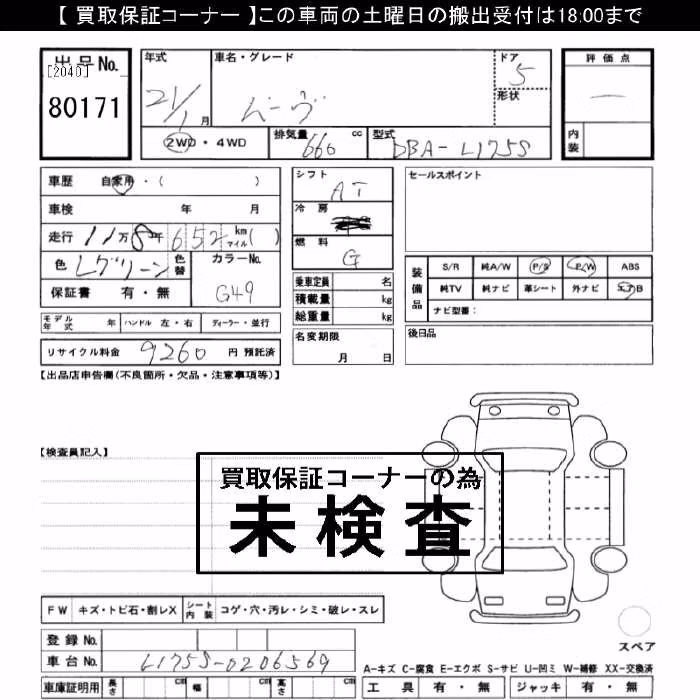 【 買取保証コーナー 】この車両の土曜日の搬出受付は18:00まで
出品No.
[2040]
80171
年式
21/1月
車名・グレード
ムーヴ
ドア
5
形状
評価点
—
内装
2WD・4WD
排気量 660 cc
型式 DBA-L175S
車歴 自家用・( )
車検 年 月
走行 11万8千652 km マイル( )
色 Lグリーン
色替
カラーNo.
G49
保証書 有・無
シフト
AT
冷房
燃料
G
乗車定員 名
積載量 kg
総重量 kg
セールスポイント
装備品
S/R 純A/W P/S P/W ABS
純TV 純ナビ 革シート 外ナビ エアB
ナビ型番:
モデル年式 年 ハンドル 左・右 ディーラー・並行
名変期限
月 日
後日品
リサイクル料金 9260 円 預託済
【出品店申告欄(不良箇所・欠品・注意事項等)】
【検査員記入】
買取保証コーナーの為
未検査
FW キズ・トビ石・割レX シート内装 コゲ・穴・汚レ・シミ・破レ・スレ
スペア
登録No.
車台No. L175S-0206569
A-キズ C-腐食 E-エクボ S-サビ U-凹ミ W-補修 XX-交換済
車庫証明用 長さ cm 幅 cm 高さ cm
工具 有・無 ジャッキ 有・無